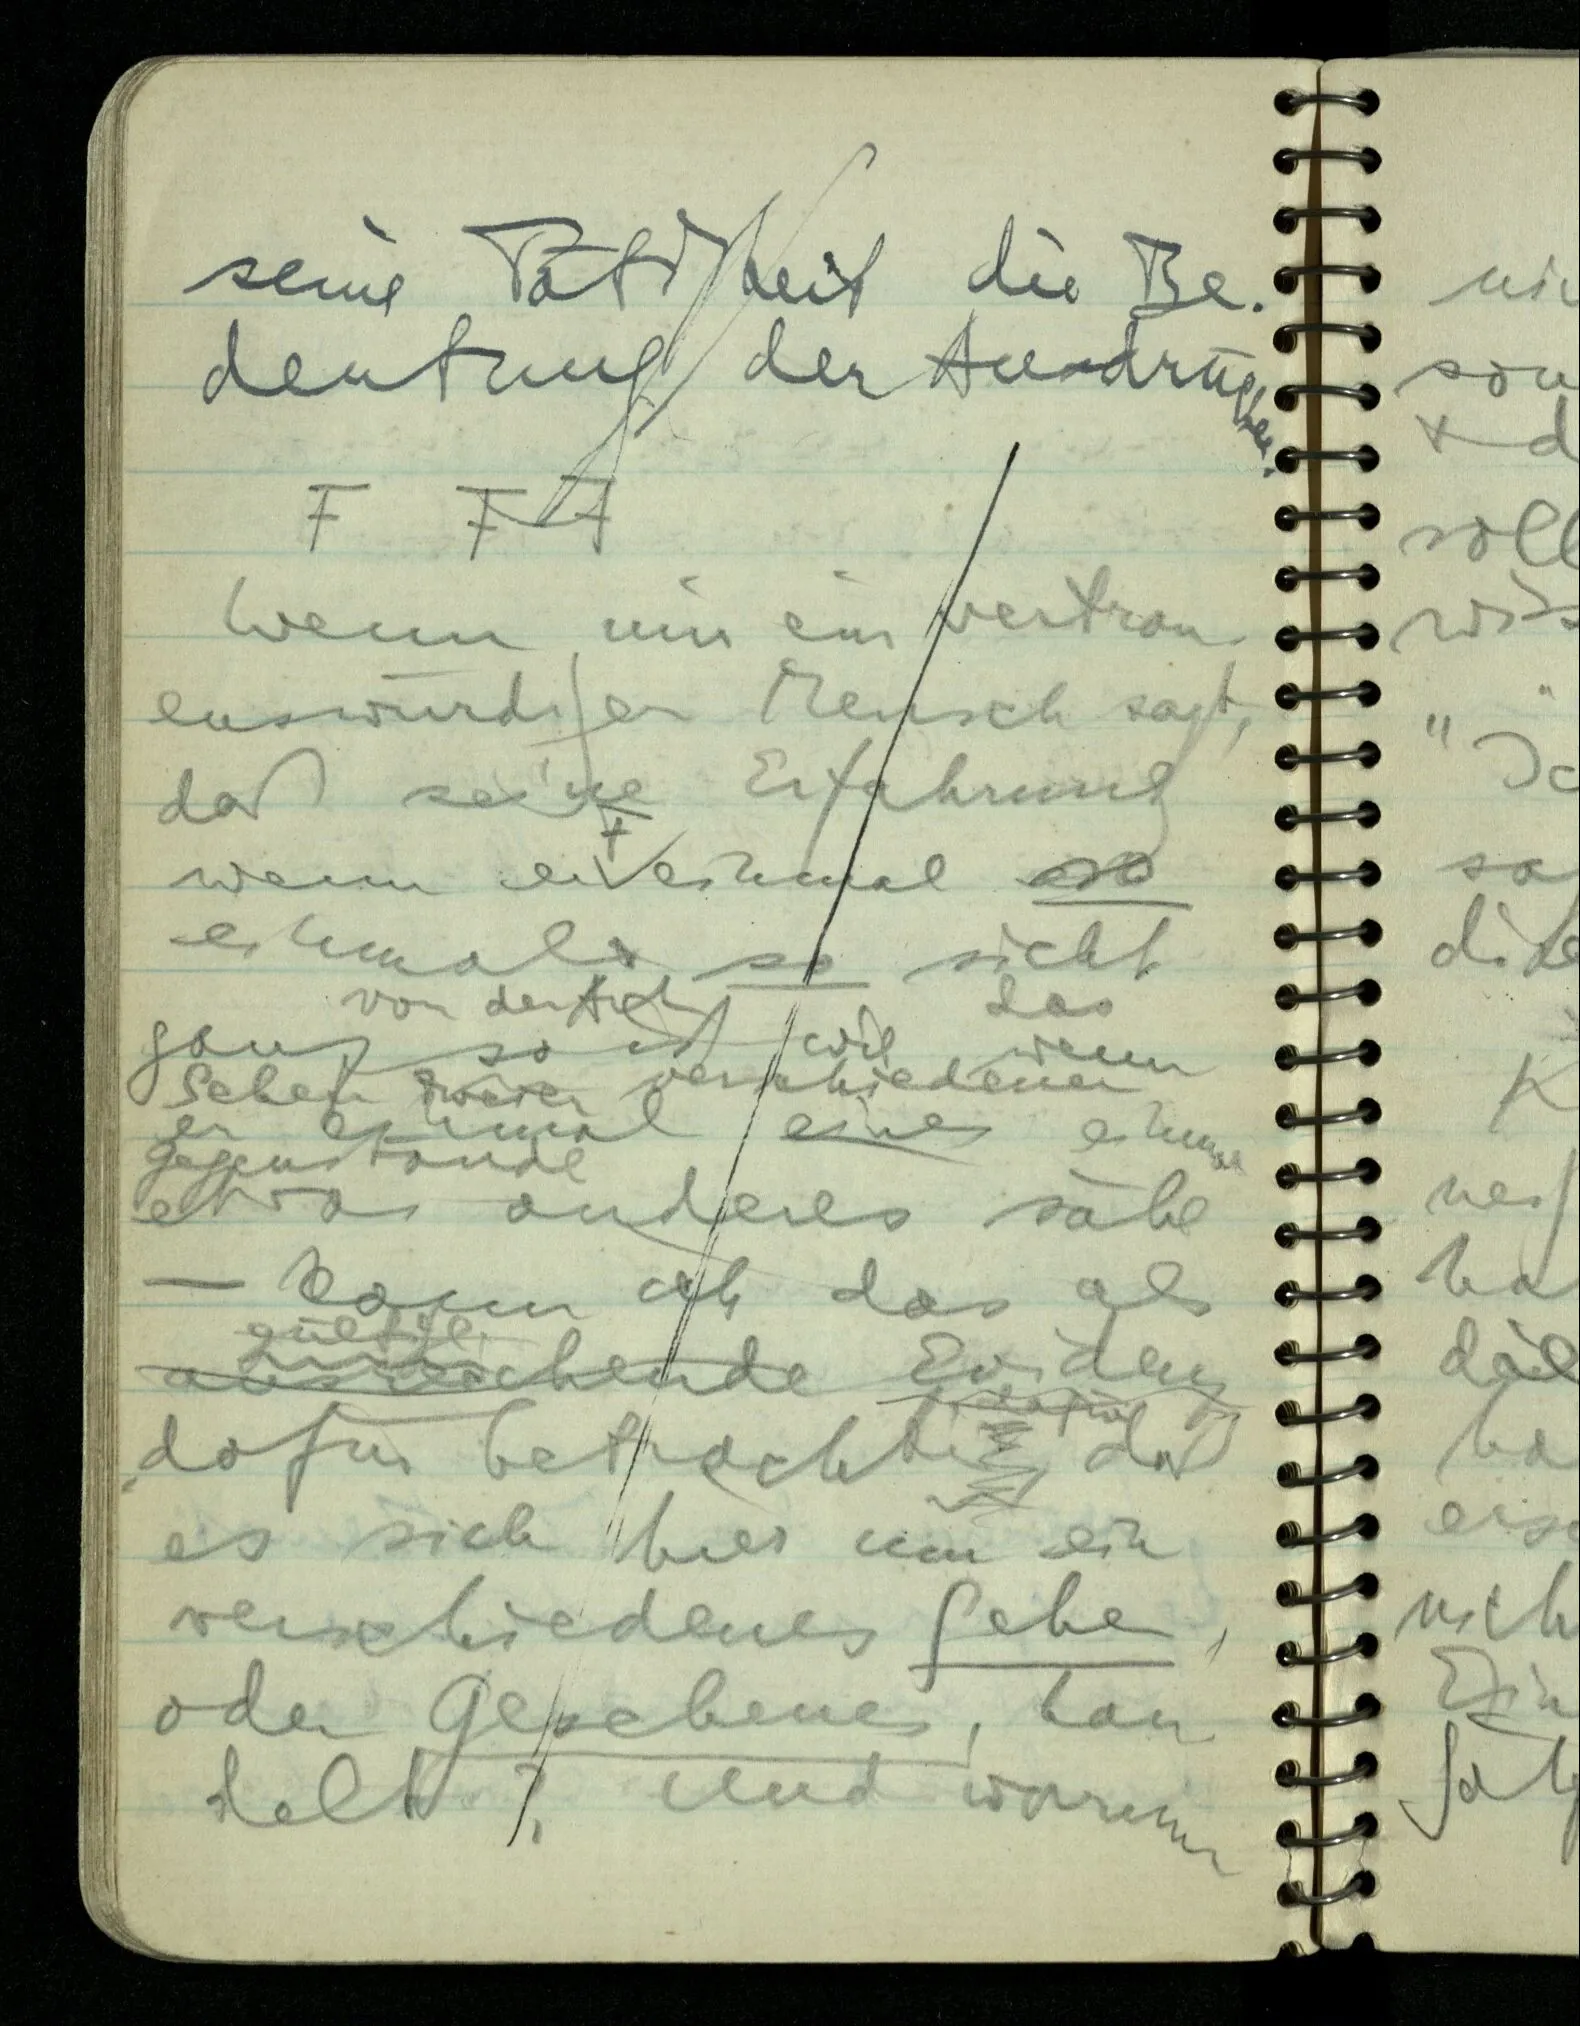 seine Tätigkeit die Be-
deutung der Ausdrücke.
F F F
Wenn mir ein vertrau-
enswürdiger Mensch sagt,
daß seine Erfahrung
wenn er einmal so
einmal so sieht
von der Art das
ganz so ist wie wenn
Sehen zweier verschiedener
er einmal eines einmal
Gegenstände
etwas anderes sähe
— kann ich das als
gültige
ausreichende Evidenz
dafür
dafür betrachten daß
es sich hier um ein
verschiedenes Sehen,
oder Gesehenes, han
delt? Und warum
nic
son
+ d
soll
wis
"Ic
sa
die
K
ha
ha
nich